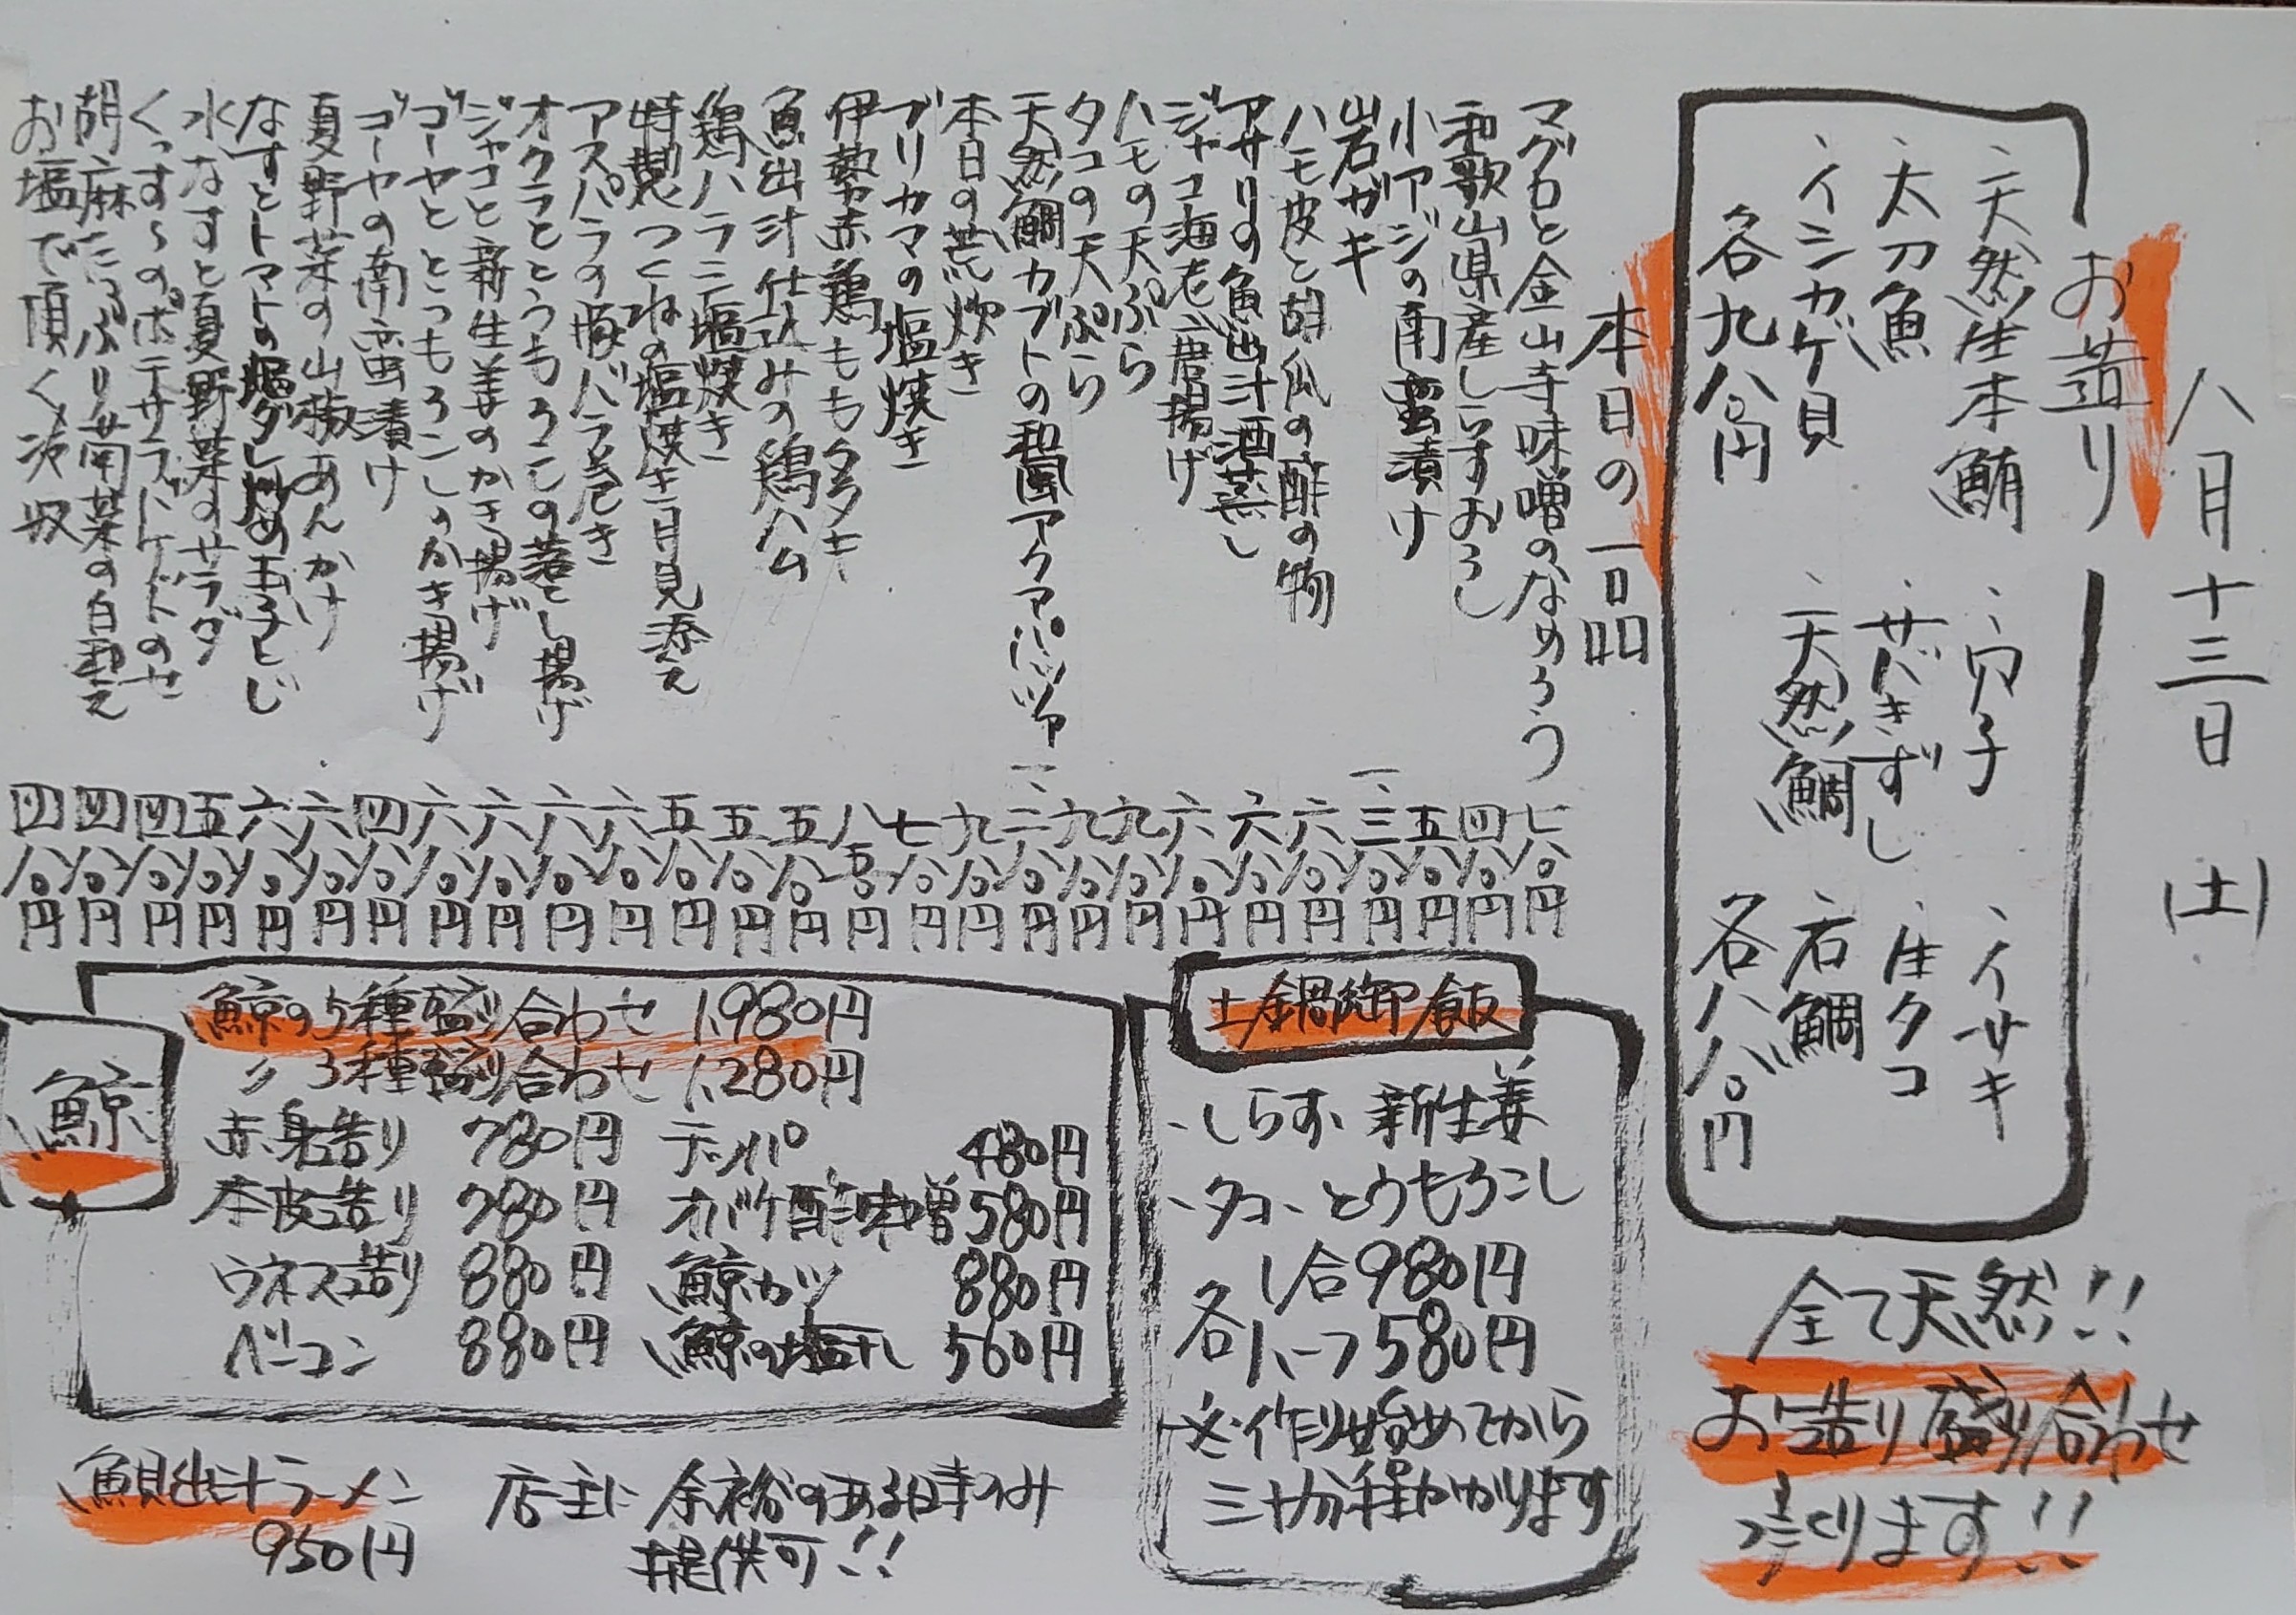 八月十三日(土)
お造り
、天然生本鮪 、穴子 、イサキ
、太刀魚 、サバきずし 、生タコ
、イシカゲ貝 、天然鯛 、石鯛
各九八〇円 各八八〇円
全て天然!!
お造り盛り合わせ
承ります!!
本日の一品
マグロと金山寺味噌のなめろう 七八〇円
和歌山県産しらすおろし 四八〇円
小アジの南蛮漬け 五八〇円
岩ガキ 一、三八〇円
ハモ皮と胡瓜の酢の物 六八〇円
アサリの魚出汁酒蒸し 六八〇円
ジャコ海老ノ唐揚げ 六八〇円
ハモの天ぷら 九八〇円
タコの天ぷら 九八〇円
天然鯛カブトの和風アクアパッツァ 一、二八〇円
本日の荒炊き 九八〇円
ブリカマの塩焼き 七八〇円
伊勢赤鶏ももタタキ 八五〇円
魚出汁仕込みの鶏ハム 五八〇円
鶏ハラミ塩焼き 五八〇円
特製つくねの塩焼き 月見添え 五八〇円
アスパラの豚バラ巻き 六八〇円
オクラととうもろこしの落とし揚げ 六八〇円
ジャコと新生姜のかき揚げ 六八〇円
ゴーヤととうもろこしのかき揚げ 六八〇円
ゴーヤの南蛮漬け 四八〇円
夏野菜の山椒あんかけ 六八〇円
なすとトマトの塩ダレ炒め玉子とじ 六八〇円
水なすと夏野菜のサラダ 五八〇円
くっすぅのポテサラバゲットのせ 四八〇円
胡麻たっぷり菊菜の白和え 四八〇円
お塩で頂く冷奴 四八〇円
土鍋御飯
・しらす、新生姜
・タコ、とうもろこし
各 1合980円
ハーフ580円
※作り始めてから
三十分程かかります
鯨
鯨の5種盛り合わせ 1,980円
〃 3種盛り合わせ 1,280円
赤身造り 780円 テッパ 480円
本皮造り 780円 オバケ酢味噌 580円
ウネス造り 880円 鯨カツ 880円
ベーコン 880円 鯨の塩干し 560円
魚貝出汁ラーメン
950円
店主に余裕のある時のみ
提供可!!